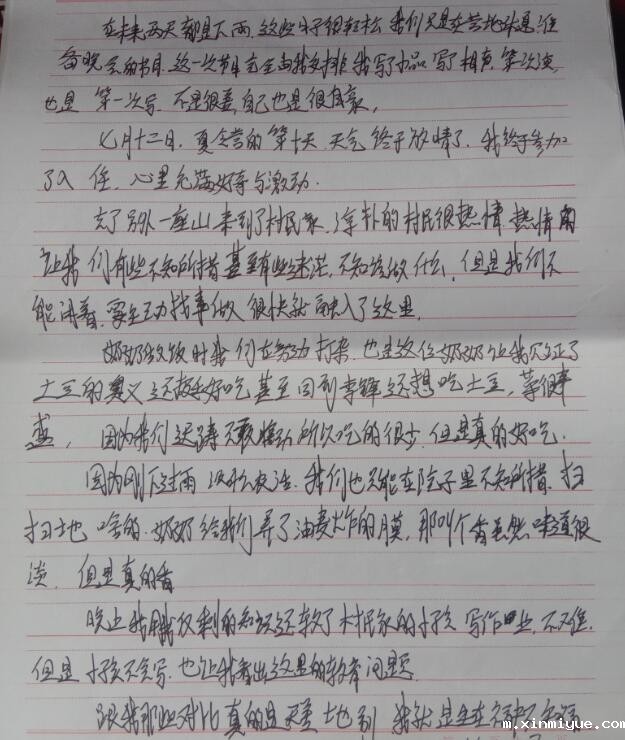 在未来两天都是下雨,这些日子很轻松 我们只是在营地休息,准
备晚会的节目,这一次节目完全由我安排 我写小品 写相声,第一次演
也是 第一次写 不是很差,自己也是很自豪,
七月十二日,夏令营的第十天,天气终于放晴了,我终于参加
了入 住,心里充满好奇与激动.
去了另外一座山 来到了村民家,淳朴的村民很热情 热情
让我们有些不知所措 甚至有些迷茫,不知该做什么,但是我们不
能闲着,要主动找事做 很快就融入了这里.
奶奶做饭时我们在努力打杂,也是这位奶奶让我见证了
土豆的奥义 还挺好吃 甚至回到 还想吃土豆,菜很丰
盛, 因为我们 所以吃的很少,但是真的好吃.
因为刚下过雨 没办法,我们也只能在院子里不知所措,扫
扫地 啥的,奶奶给我们弄了油煮炸的膜,那叫个香虽然味道很
淡,但是真的香
晚上我用我仅剩的知识还教了村民家的小孩 写作业,不难,
但是小孩不会写,也让我看出这里的教育问题,
跟我那些对比 真的是天差地别 我就是生在
m.xinmiyue.com